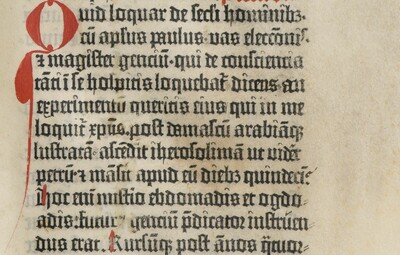 Quid loquar de secli hominibꝫ.
cū apl̓us paulus. vas elecc̄onis.
⁊ magister genciū. qui de consciencia
tāti ī se hospitis loquebat̉. dicens. an
experimentū queritis eius qui in me
loquit̉ xp̄us. post damascū arabiāqꝫ
lustratā. ascēdit iherosolimā ut vider̄
petrū ⁊ māsit apud eū diebꝫ quindecī.
hoc em̄ misterio ebdomadis et ogdo⸗
adis. futur̉ genciū p̄dicator instruen⸗
dus erat. Rursūqꝫ post ānos q̄tuor⸗